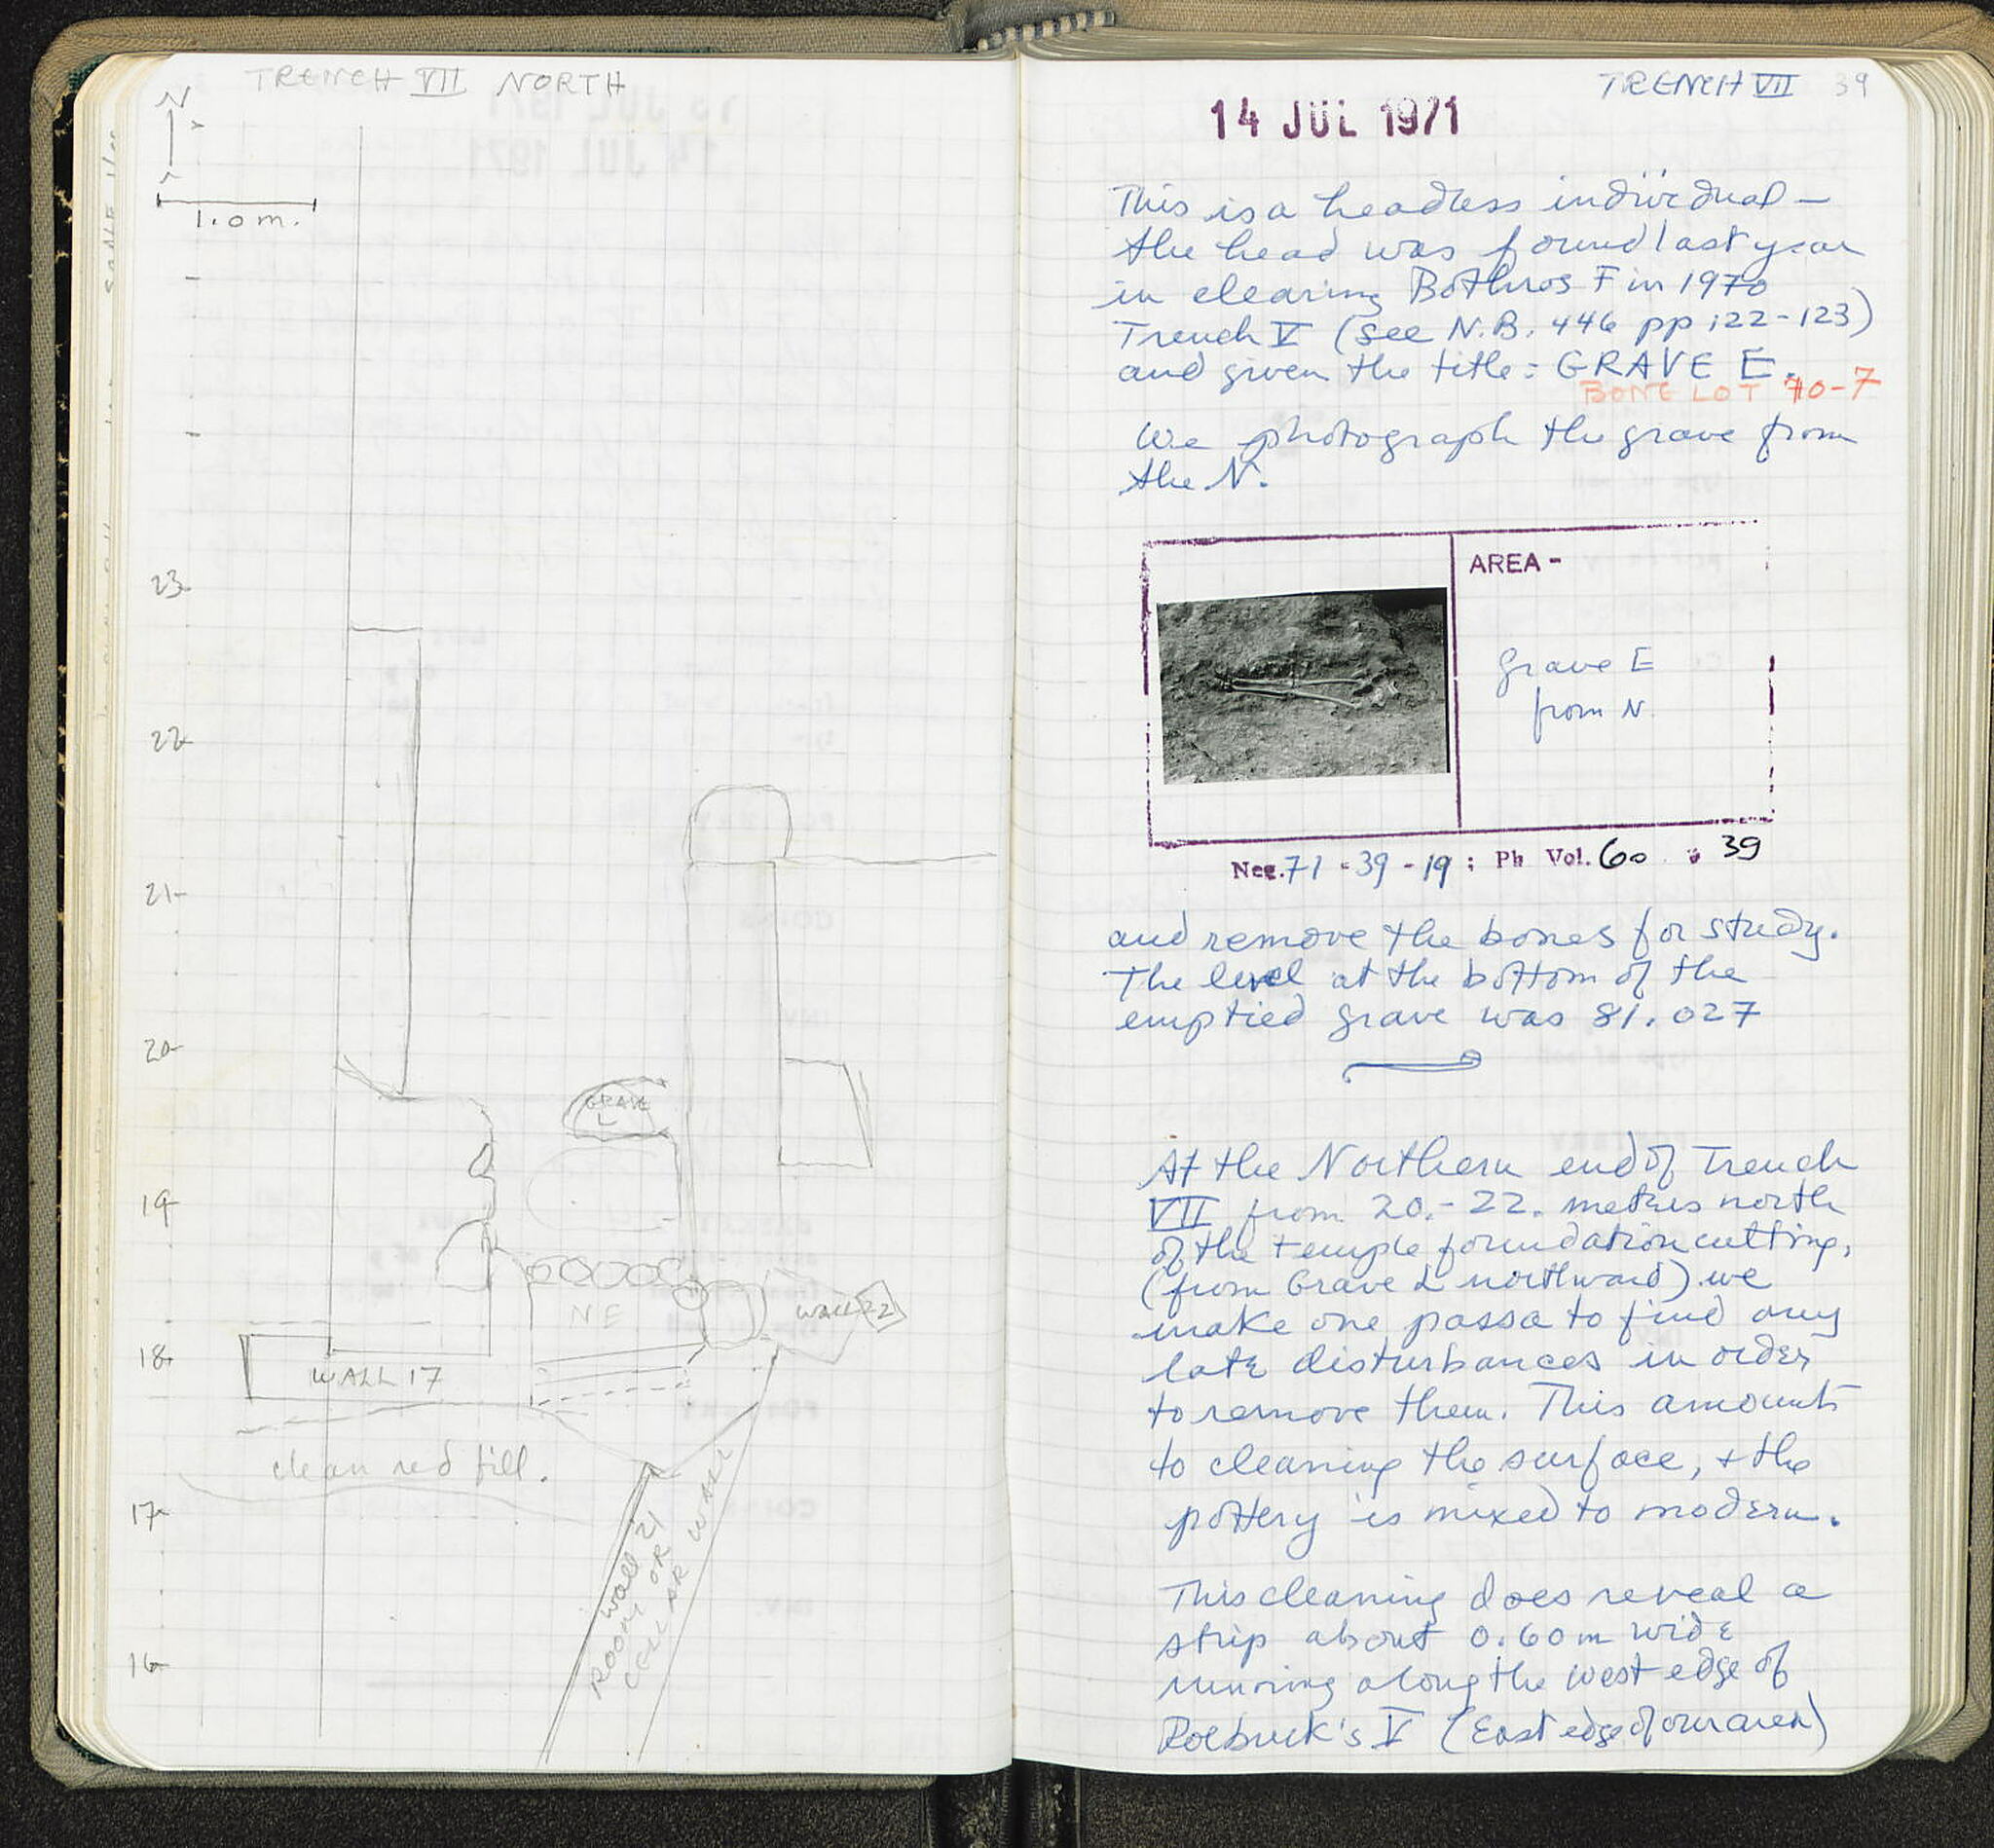 TRENCH VII NORTH
N
1.0 m.
23
22
21
20
19
18
17
16
GRAVE
L
NE
WALL 22
WALL 17
clean red fill.
Wall 21
ROOM OR
CELLAR WALL
TRENCH VII 39
14 JUL 1971
This is a headless individual –
the head was found last year
in clearing Bothros F in 1970
Trench V (see N.B. 446 pp 122-123)
and given the title: GRAVE E.
BONE LOT 70-7
We photograph the grave from
the N.
AREA -
Grave E
from N.
Neg. 71 - 39 - 19 ; Ph Vol. 60 39
and remove the bones for study.
The level at the bottom of the
emptied grave was 81.027
At the Northern end of Trench
VII from 20.-22. metres north
of the temple foundation cutting,
(from Grave L northward) we
make one passa to find any
late disturbances in order
to remove them. This amounts
to cleaning the surface, + the
pottery is mixed to modern.
This cleaning does reveal a
strip about 0.60 m wide
running along the west edge of
Roebuck's V (East edge of our area)